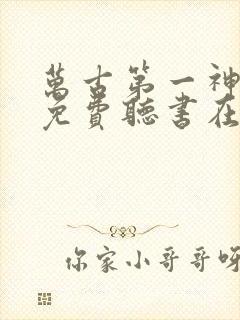 萬古第一神
免費聽書在
你家小哥哥呀